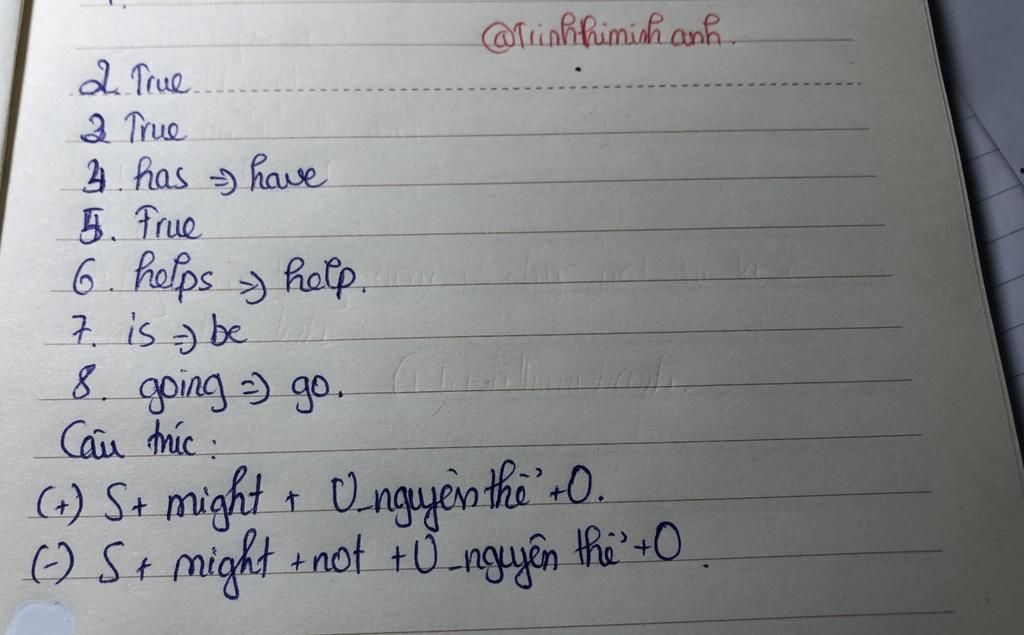 @Trinhthiminh anh.
2. True
3 True
4. has => have
5. True
6. helps => help.
7. is => be
8. going => go.
Cấu trúc:
(+) S + might + V_nguyên thể + O.
(-) S + might + not + V_nguyên thể + O.